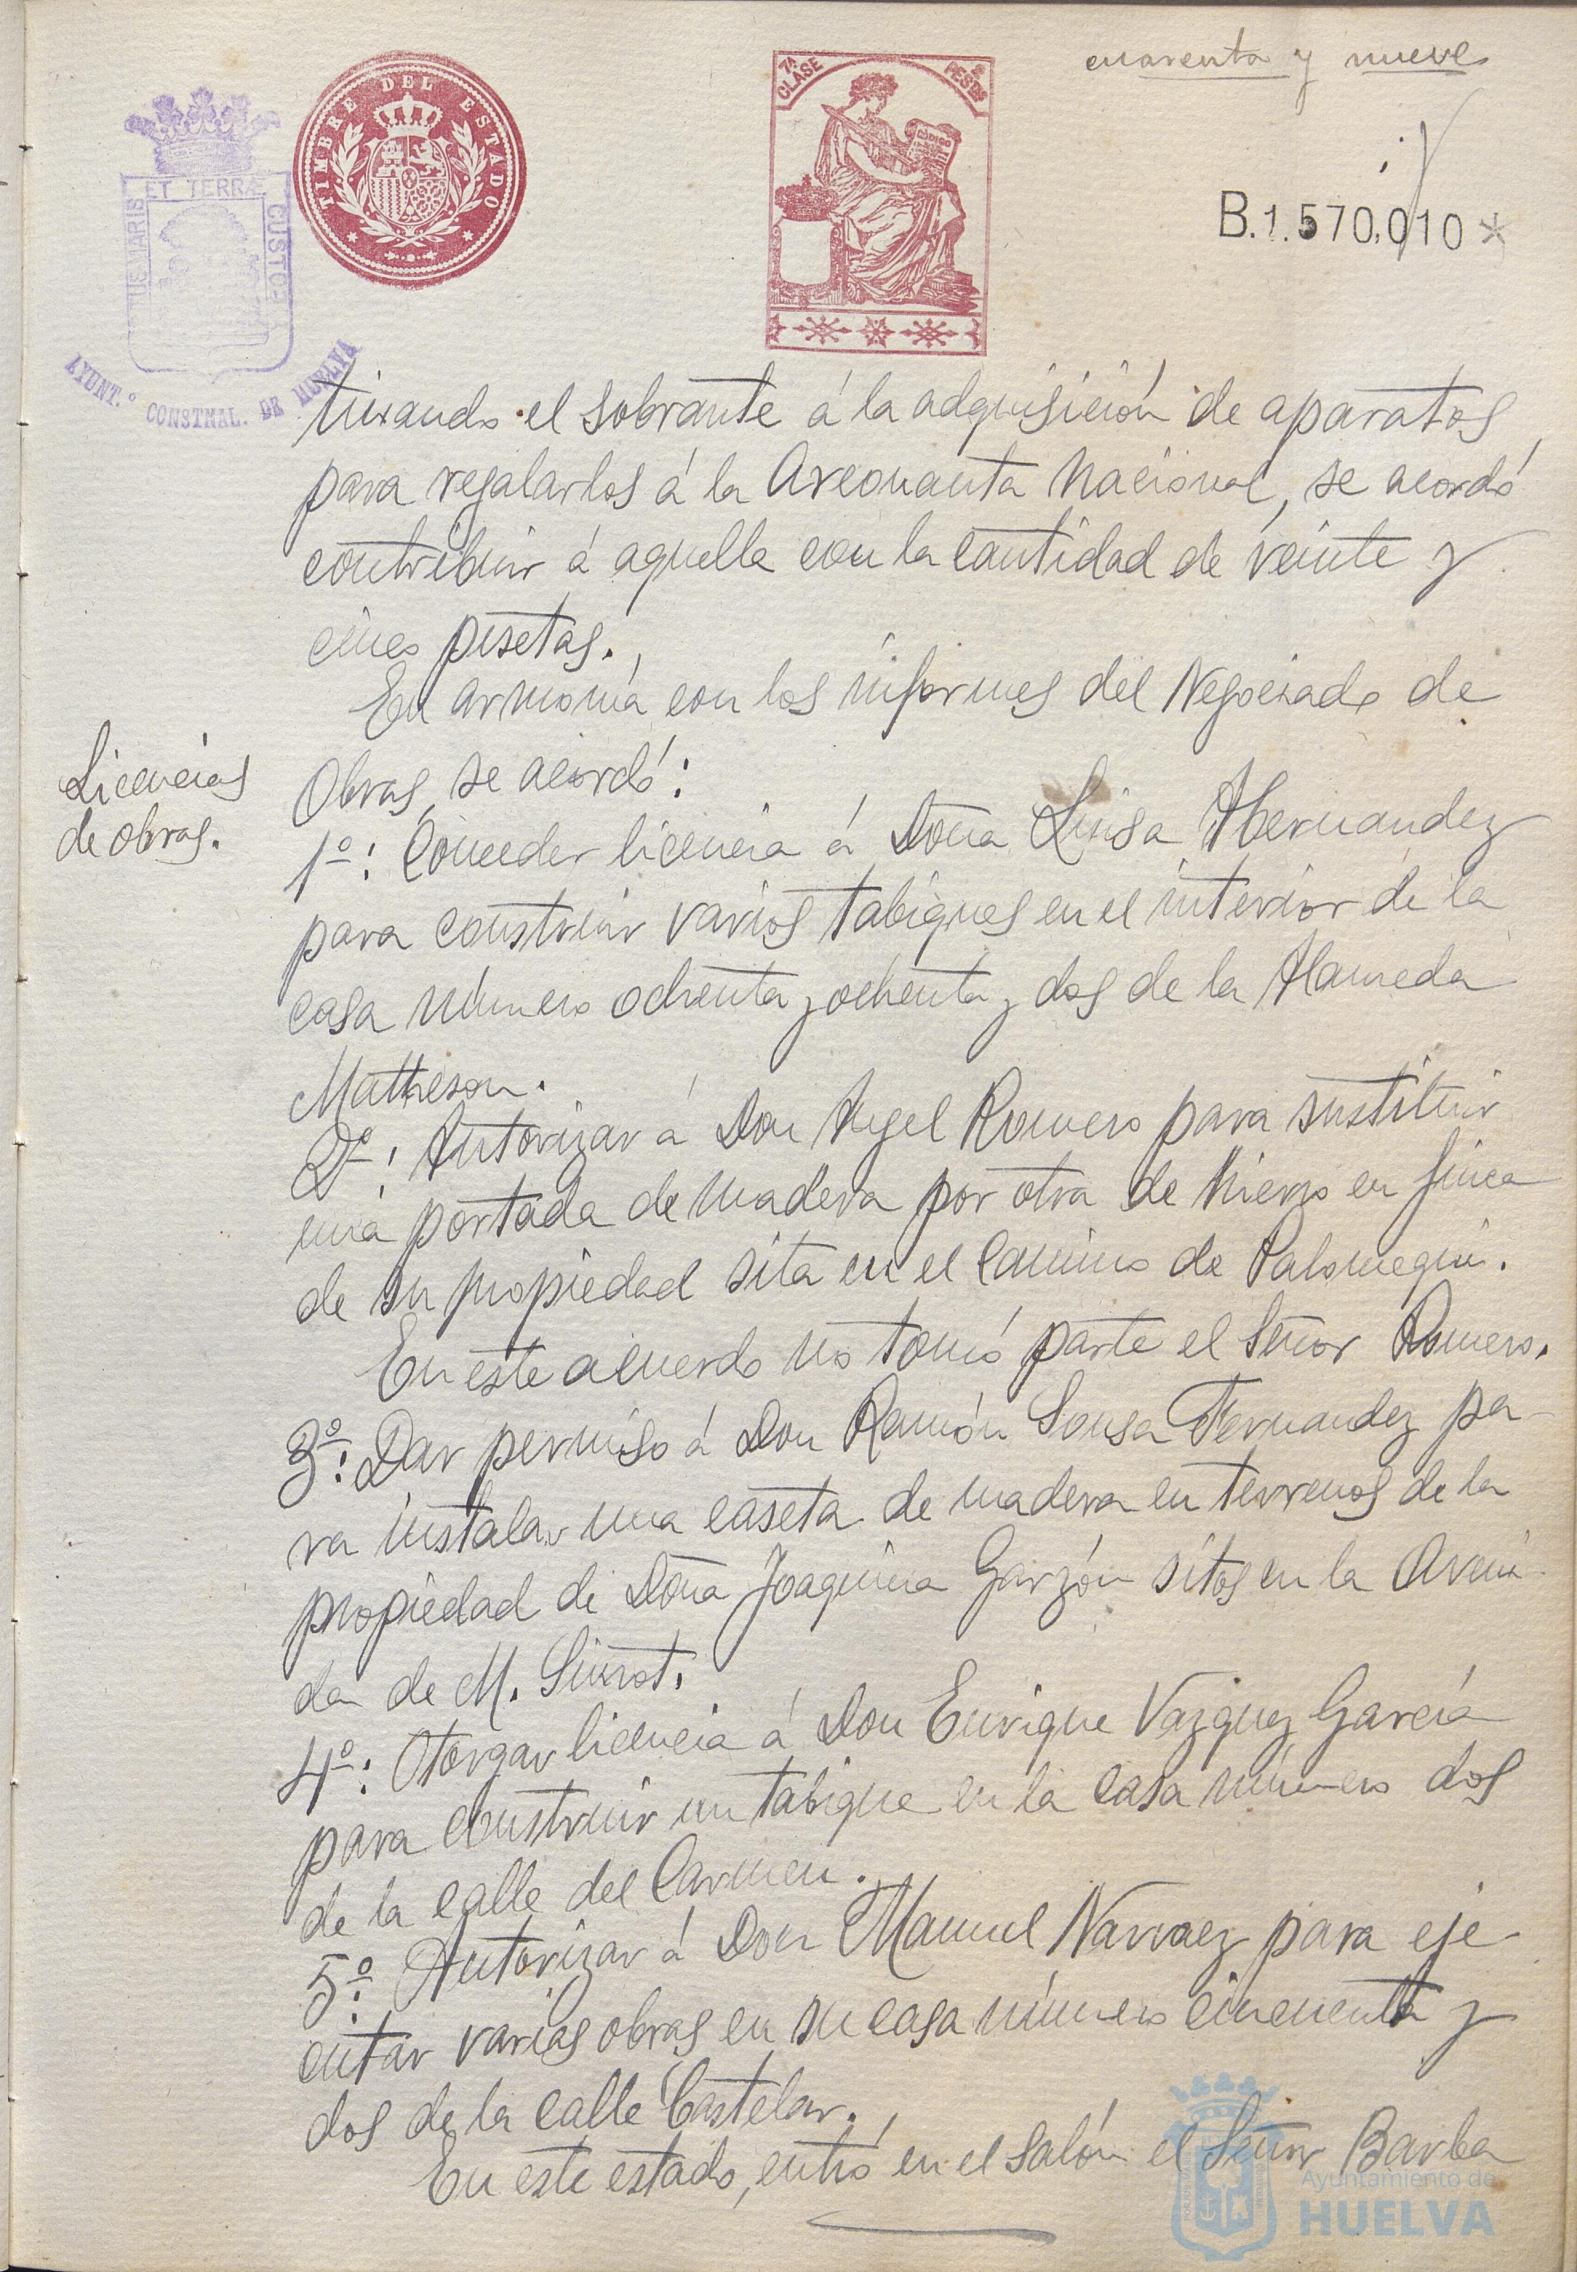 cuarenta y nueve
TIMBRE DEL ESTADO
7ª CLASE
PESTAS
B.1.570.010*
ET TERRÆ CUSTO
AYUNT.º CONSTNAL. DE HUELVA
tinando el sobrante á la adquisición de aparatos
para regalarlos á la Areonauta Nacional, se acordó
contribuir á aquella con la cantidad de veinte y
cinco pesetas.
En armonía con los informes del Negociado de
Obras, se acordó:
Licencias
de obras.
1º: Conceder licencia á Doña Luisa Hernandez
para construir varios tabiques en el interior de la
casa número ochenta y ochenta y dos de la Alameda
Matheson.
2º: Autorizar á Don Angel Romero para sustituir
una portada de madera por otra de hierro en finca
de su propiedad sita en el Camino de Palomeque.
En este acuerdo no tomó parte el Señor Romero.
3º: Dar permiso á Don Ramón Sousa Fernandez pa-
ra instalar una caseta de madera en terrenos de la
propiedad de Doña Joaquina Garzón sitos en la Aveni-
da de M. Siurot.
4º: Otorgar licencia á Don Enrique Vazquez García
para construir un tabique en la casa número dos
de la calle del Carmen.
5º: Autorizar á Don Manuel Narvaez para eje-
cutar varias obras en su casa número cincuenta y
dos de la calle Castelar.
En este estado, entró en el salón el Señor Barba
Ayuntamiento de
HUELVA